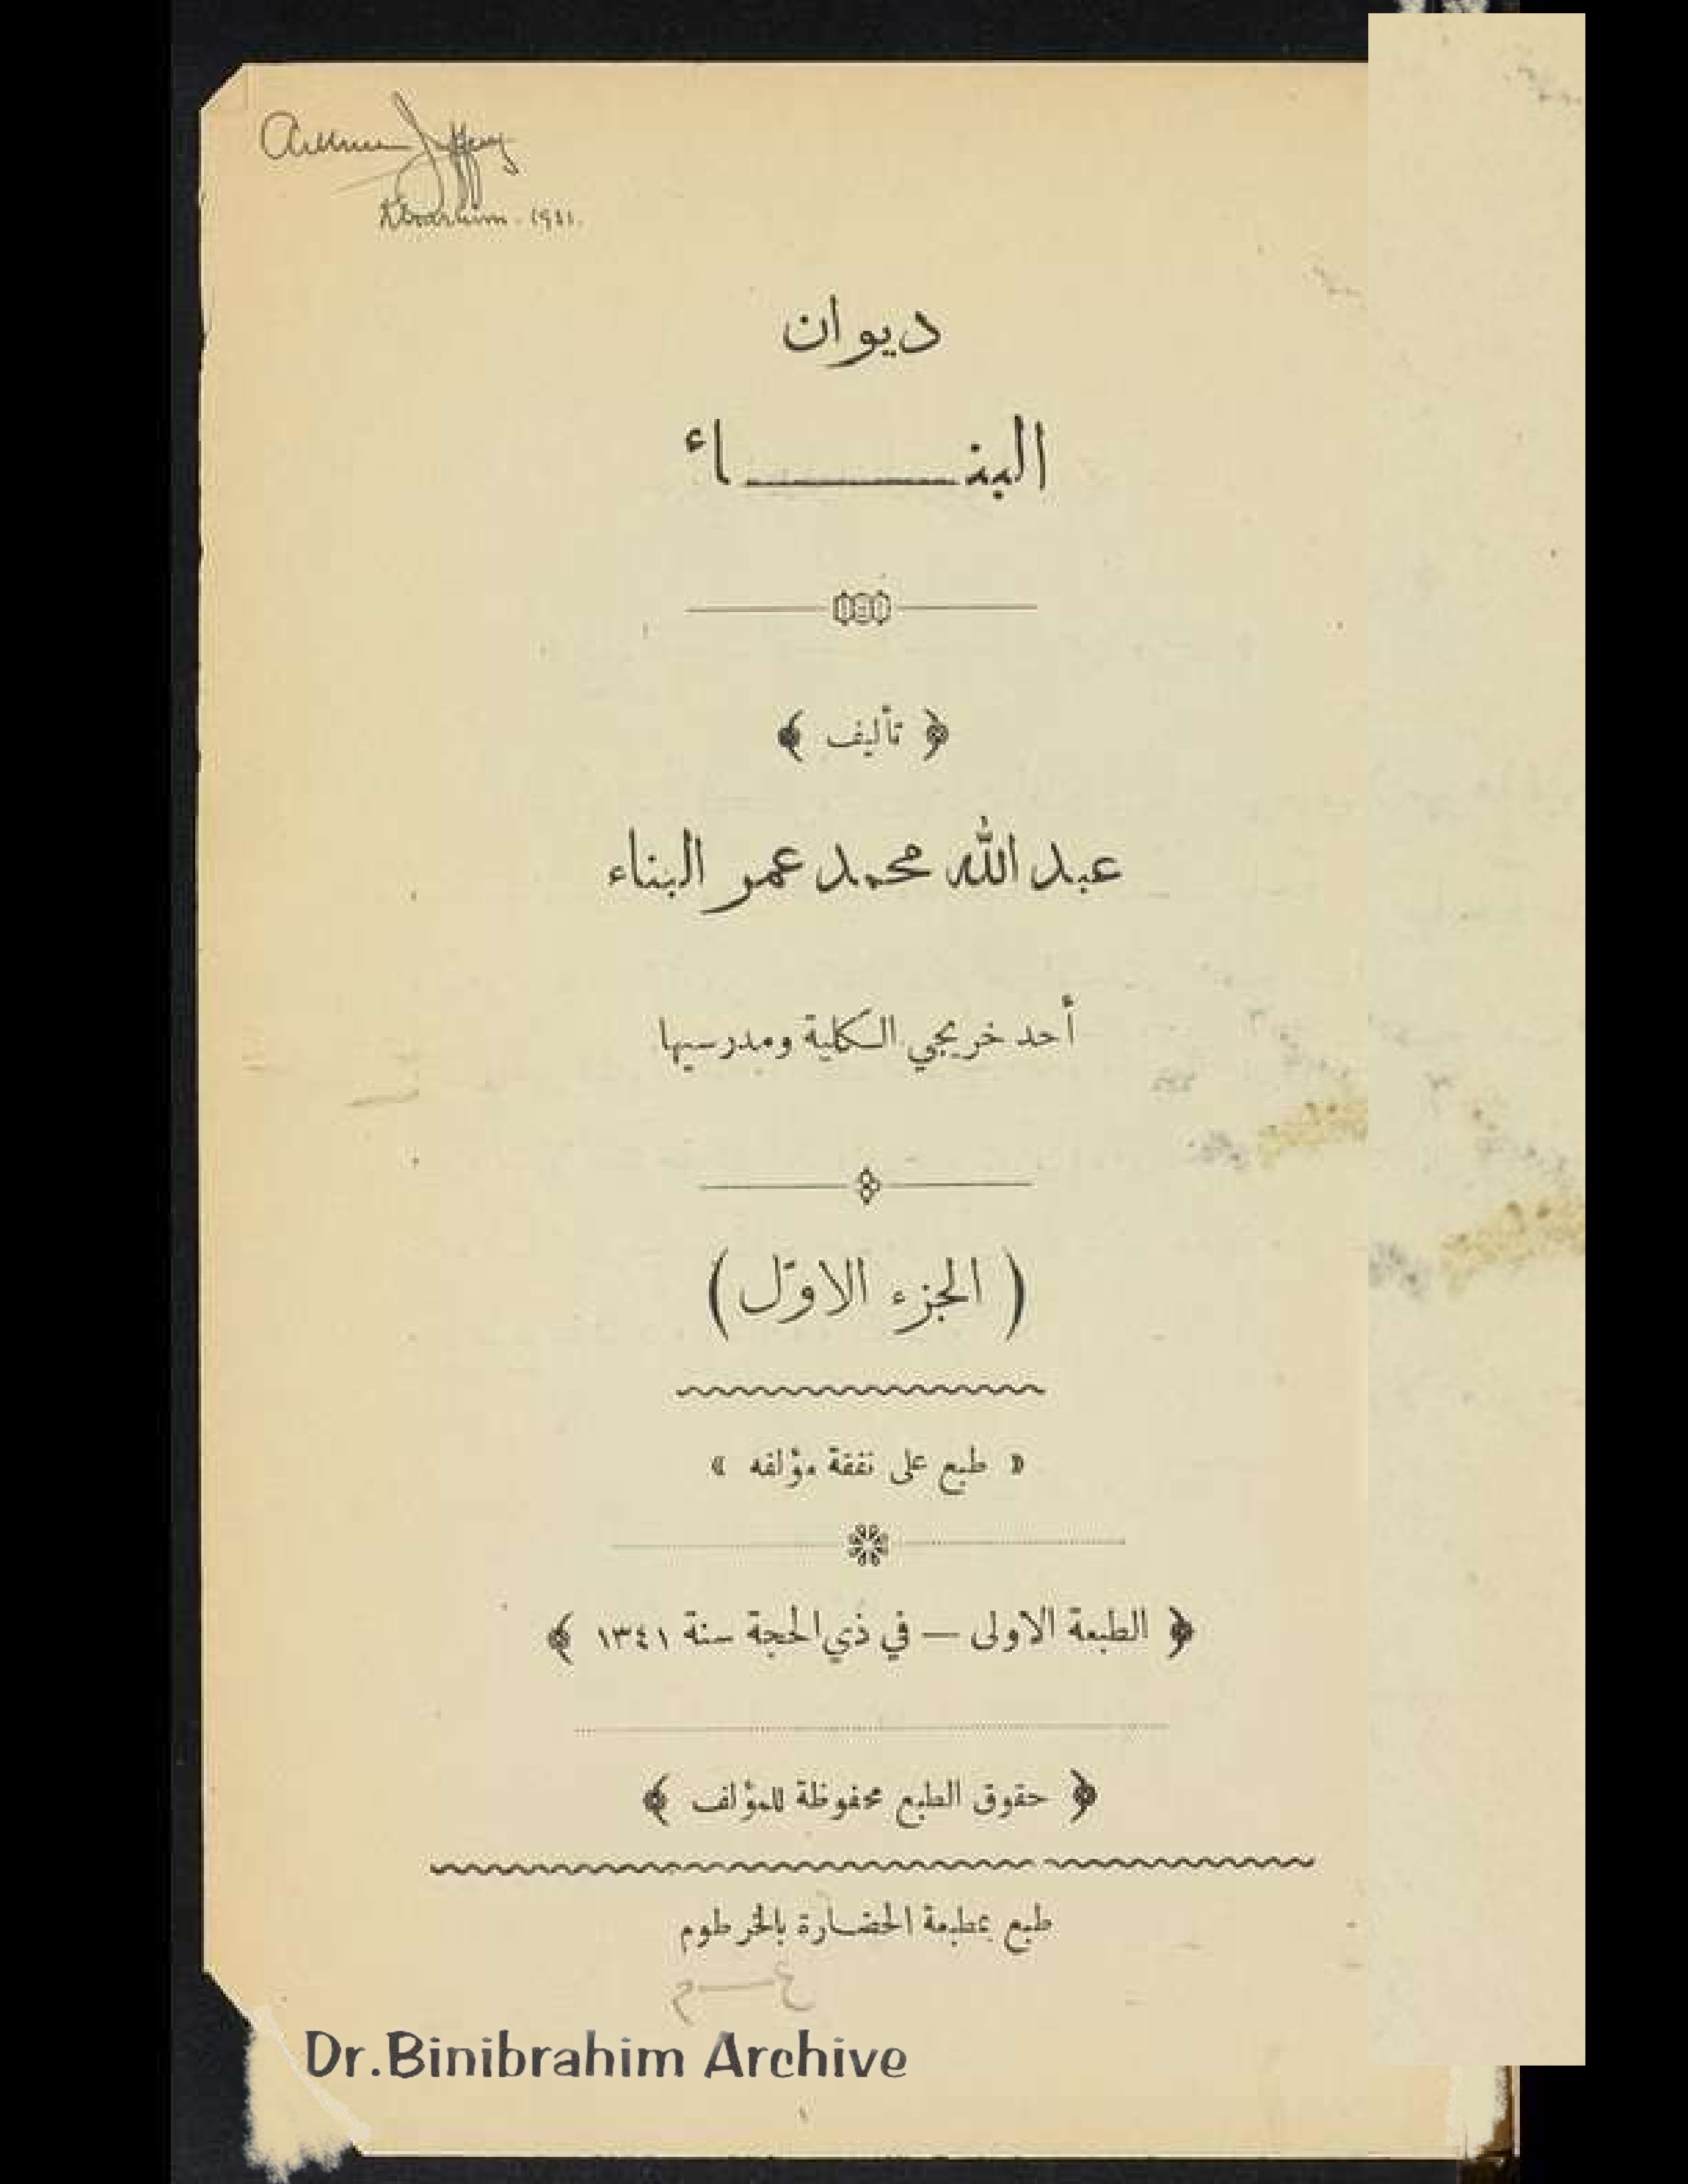 Arthur Jeffery
Khartum - 1931.
ديوان
البنـــــــاء
﴿ تأليف ﴾
عبد الله محمد عمر البناء
أحد خريجي الكلية ومدرسيها
( الجزء الاوّل )
« طبع على نفقة مؤلفه »
﴿ الطبعة الاولى — في ذي الحجة سنة ١٣٤١ ﴾
﴿ حقوق الطبع محفوظة للمؤلف ﴾
طبع بمطبعة الحضارة بالخرطوم
Dr.Binibrahim Archive